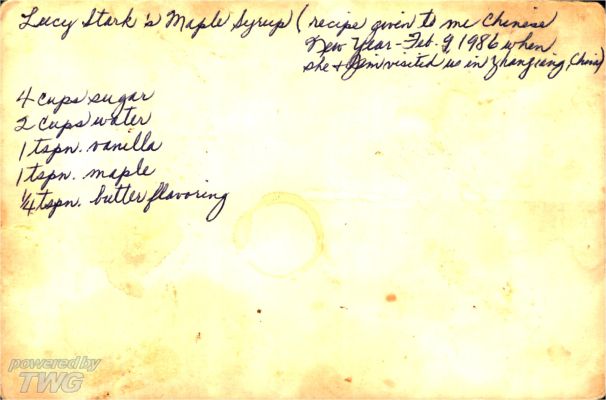 Lucy Stark's Maple Syrup (recipe given to me Chinese
New Year - Feb. 9, 1986 when
she & Jim visited us in Zhanjiang, China)
4 cups sugar
2 cups water
1 tspn. vanilla
1 tspn. maple
1/4 tspn. butter flavoring
powered by
TWG